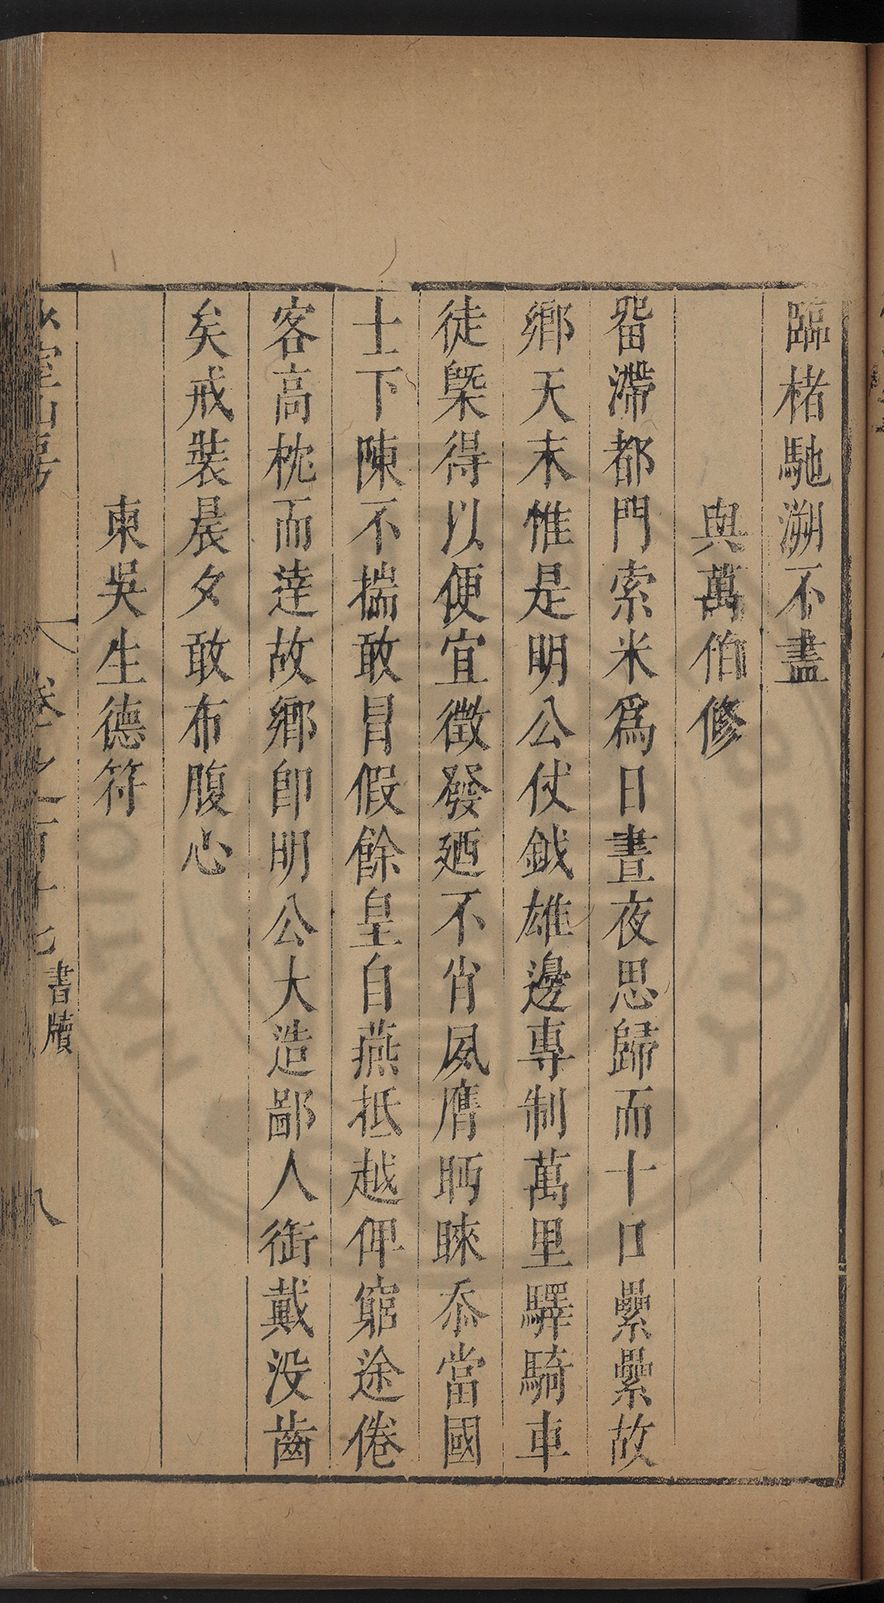 臨楮馳溯不盡
與萬伯修
畱滯都門索米爲日晝夜思歸而十口纍纍故
鄉天末惟是明公仗鉞雄邊專制萬里驛騎車
徒槩得以便宜徵發廼不肖夙膺眄睞忝當國
士下陳不揣敢冒假餘皇自燕抵越俾窮途倦
客高枕而達故鄉卽明公大造鄙人銜戴没齒
矣戒裝晨夕敢布腹心
柬吳生德符
室山房
卷之百十七
書牘
八